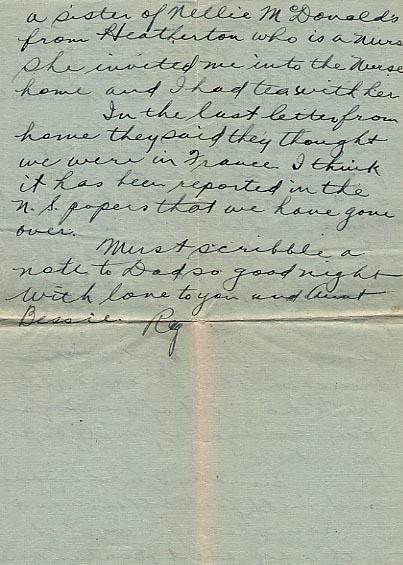 a sister of Nellie McDonalds
from Heatherton who is a nurs
she invited me into the nurse
home and I had tea with her
In the last letter from
home they said they thought
we were in France. I think
it has been reported in the
N.S. papers that we have gone
over.
Must scribble a
note to Dad so good night
with love to you and Aunt
Bessie. Reg